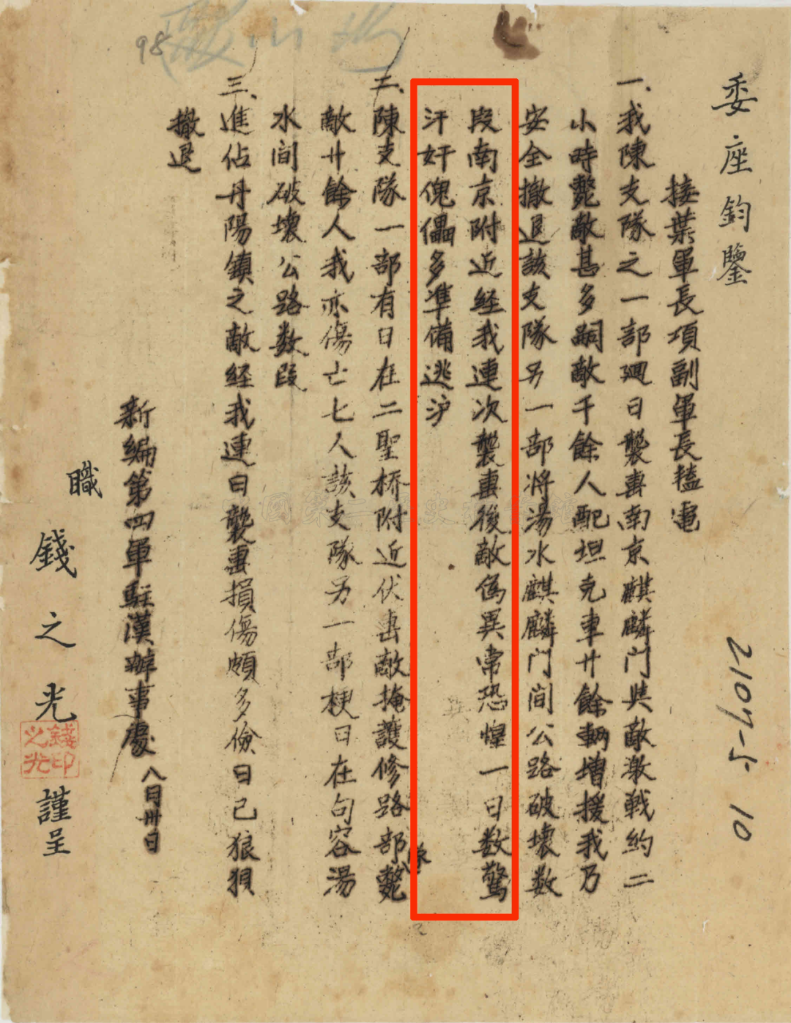 98
委座鈞鑒
接葉軍長項副軍長艷電
一、我陳支隊之一部迴日襲擊南京麒麟门與敵激戰約二
小時斃敵甚多嗣敵千餘人配坦克車廿餘輛增援我乃
安全撤退該支隊另一部將湯水麒麟门间公路破壞数
段南京附近経我連次襲擊後敵偽異常恐惶一日数驚
汗奸傀儡多準備逃沪
二、陳支隊一部有日在二聖桥附近伏击敵掩護修路部隊斃
敵廿餘人我亦傷亡七人該支隊另一部梗日在句容湯
水间破壞公路数段
三、進佔丹陽镇之敵経我連日襲擊損傷頗多儉日已狼狽
撤退
新编第四軍駐漢辦事處 八月卅日
職 錢之光 謹呈
錢印之光
2107-5 10